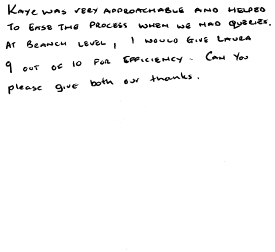 KAYE WAS VERY APPROACHABLE AND HELPED
TO EASE THE PROCESS WHEN WE HAD QUERIES.
AT BRANCH LEVEL, I WOULD GIVE LAURA
9 OUT OF 10 FOR EFFICIENCY. CAN YOU
please give both our thanks.